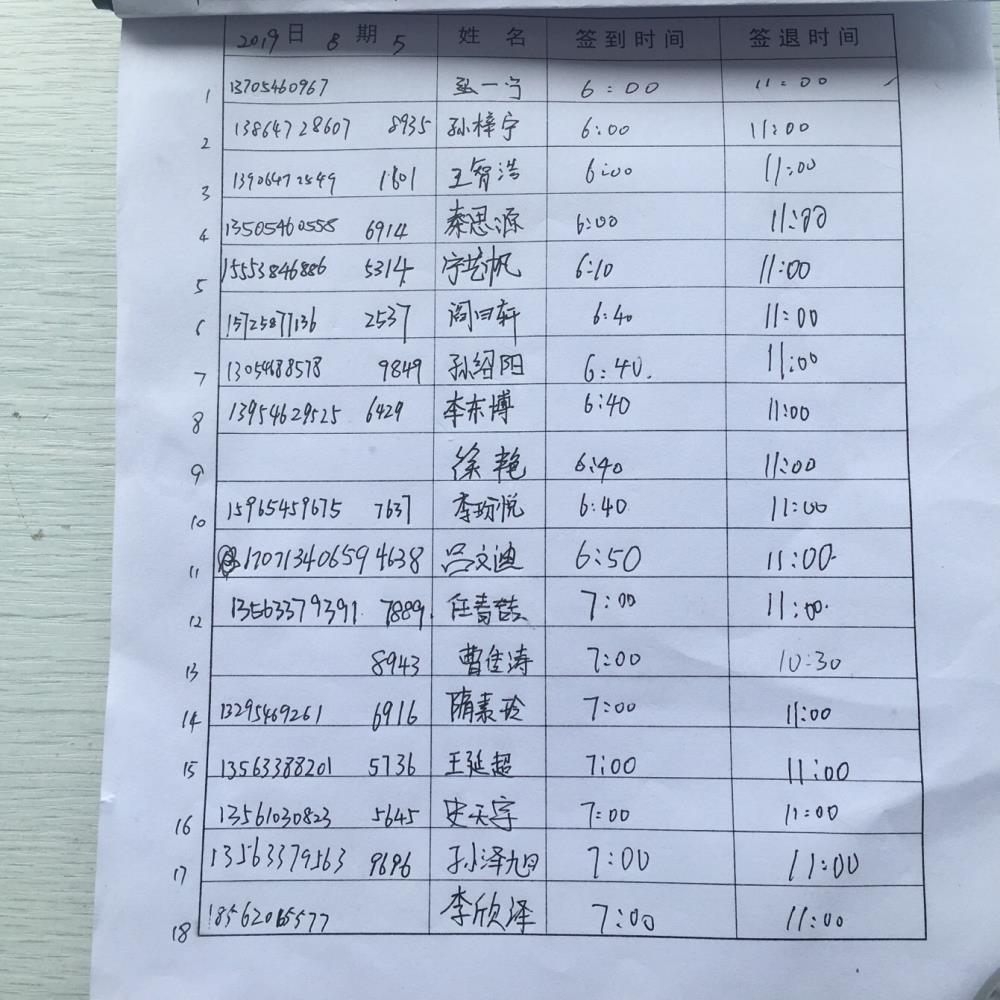 2019日 8 期 5 姓 名 签到时间 签退时间
1 13705460967 孟一宁 6:00 11:00
2 13864728607 8935 孙梓宁 6:00 11:00
3 13906472549 1601 王智浩 6:00 11:00
4 13505460558 6914 秦思源 6:00 11:00
5 15553846886 5314 宁艺帆 6:10 11:00
6 15725877136 2537 阎曰轩 6:40 11:00
7 13054688578 9849 孙绍阳 6:40. 11:00
8 13954629525 6429 李东博 6:40 11:00
9 徐艳 6:40 11:00
10 15965459675 7637 李玢悦 6:40 11:00
11 17071340659 4638 吕文迪 6:50 11:00.
12 13563379391. 7889. 任青喆 7:00 11:00.
13 8943 曹佳涛 7:00 10:30
14 13295469261 6916 隋素玲 7:00 11:00
15 13563388201 5736 王延超 7:00 11:00
16 13561030823 5645 史天宇 7:00 11:00
17 13563379563 9696 孙泽旭 7:00 11:00
18 18562065577 李欣泽 7:00 11:00